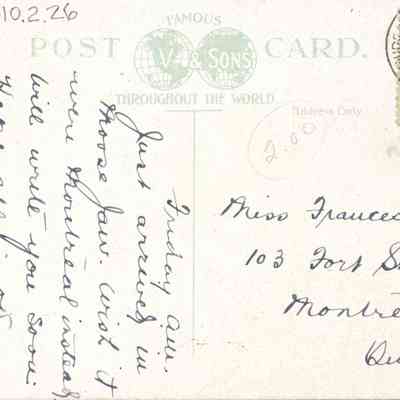 10.2.26
FAMOUS
POST CARD.
V & SONS
THROUGHOUT THE WORLD
Address Only
2.00
Friday a.m.
Just arrived in
Moose Jaw. Wish it
were Montreal instead.
Will write you soon.
Hope all
Miss Frances
103 Fort S
Montre
Qu